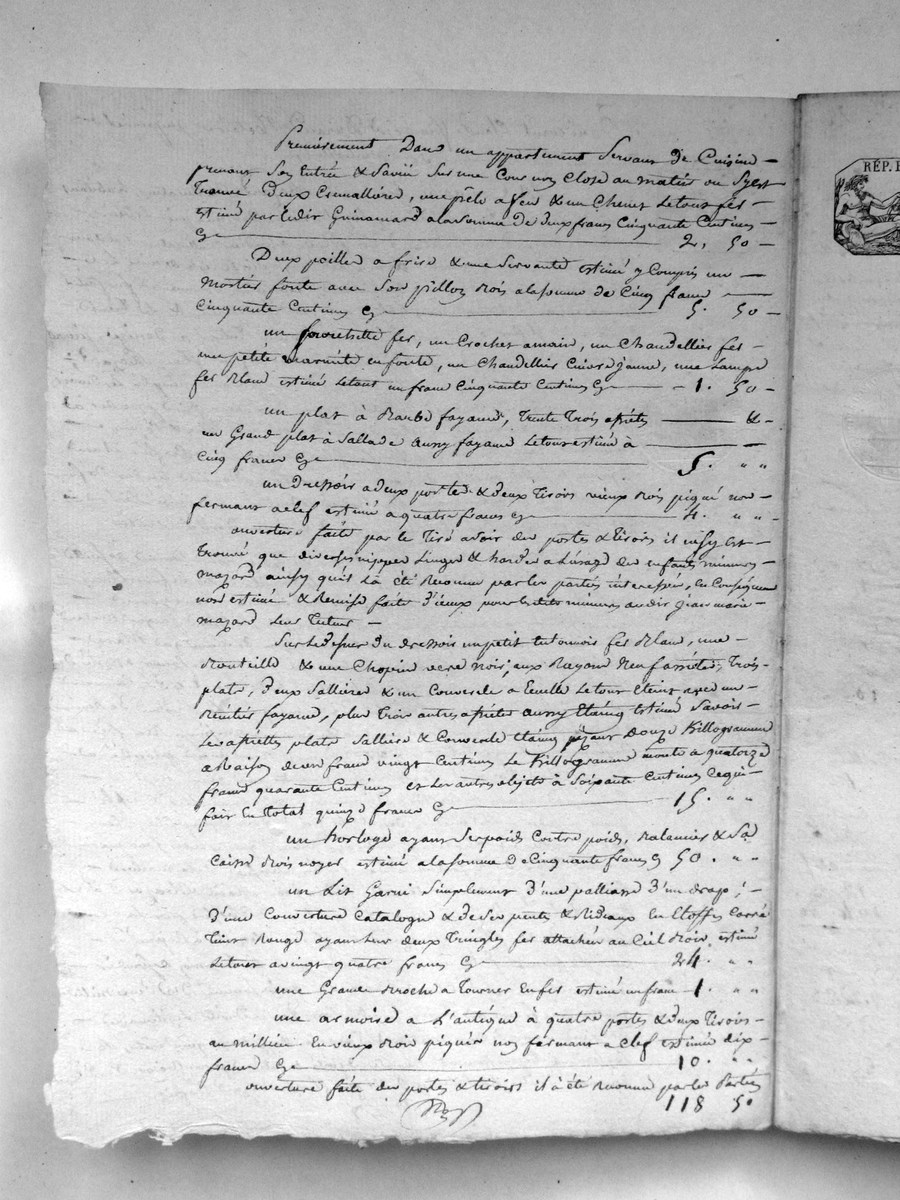 Premièrement Dans un appartement Servant de Cuisine
prenant Son Entré & Saviie Sur une Cour non Close au matin ou Sy est
Trouvé Deux Cremallière, une pêle a feu & un Chenet Le tout fer
Estimé par Ledit Guinamard a la somme de deux francs Cinquante Centimes
Cy 2, 50
Deux poilles a frire & une Servante estimé y Compris un
Mortier fonte avec Son pillon Bois a la somme de Cinq franc
Cinquante Centimes Cy 5. 50
un fer, un Crochet a main, un Chandellier fer
une petite marmite en fonte, un Chandellier Cuivre jaune, une Lampe
fer Blanc estimé Le tout un franc Cinquante Centimes Cy 1. 50
un plat à Barbe fayance, Trente Trois assiets &
un Grand plat à Sallade aussy fayance Le tout estimé à
Cinq francs Cy 5. " "
un Dressoir a deux portes & deux Tiroirs vieux Bois piqué non
fermant a clef estimé a quatre francs Cy 4. " "
ouverture faite par le Tiré avoir des portes & tiroirs il ne sy est
Trouvé que diverses nippes Linges & hardes a L'usage des enfants mineurs
mazard ainsy qu'il L'a été Reconnu par les parties interessées, En Conséquence
non estimé & Remise faite d'iceux pour lesdits mineurs audit jean marie
mazard Leur Tuteur
Sur Le dessus du dressoir un petit entonnoir fer Blanc, une
Bouteille & une Chopine verre noir, aux Rayons Neuf assiètes, Trois
plats, deux Sallières & un Couvercle a Ecuelle Le tout Etain avec un
Bénitier fayance, plus Trois autres assiètes aussy Etaing Estimé Savoir
Les assiettes plats Sallière & Couvercle Etaing pezant douze Killogramme
a Raison de un franc vingt Centimes Le Killogramme monte a quatorze
francs quarante Centimes et Les autres objets à Soixante Centimes Ce qui
fait En total quinze francs Cy 15. " "
un Horloge ayant Ses poids Contre poids, Balancier & Sa
Caisse Bois noyer estimé a la somme de Cinquante francs Cy 50. " "
un Lit Garni Simplement d'une palliasse d'un drap,
d'une Couverture Catalogne & de Ses pente & Rideaux En Etoffes Carré
Teint Rouge ayant Leur deux Tringles fer attachées au Ciel Bois, estimé
Le tout a vingt quatre francs Cy 24. " "
une Grande Broche a Tourner En fer estimé un franc 1. " "
une armoire a L'antique à quatre portes & deux Tiroirs
au millieu En vieux Bois piquée non fermant a Clef estimée dix
francs Cy 10. " "
ouverture faite des portes & tiroirs il à été Reconnu par les Parties
118 50
RÉP.